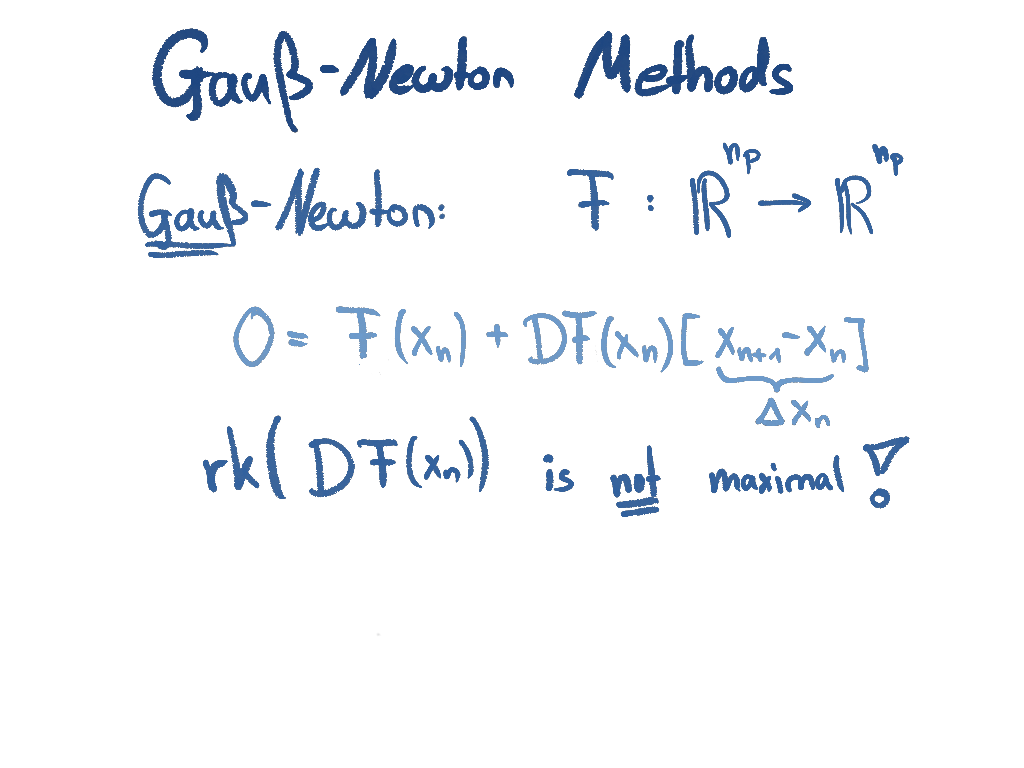 Gauß-Newton Methods
Gauß-Newton: F : ℝ^{n_p} → ℝ^{n_p}
0 = F(x_n) + DF(x_n)[x_{n+1} - x_n]
Δx_n
rk(DF(x_n)) is not maximal!